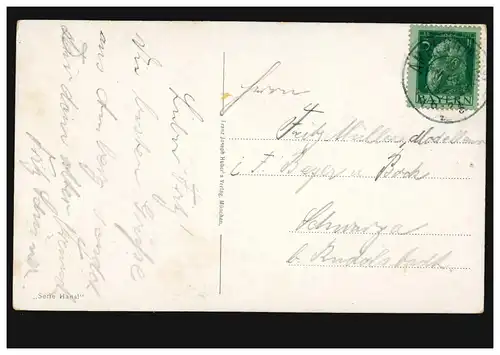 Lieber Fritz!
Die besten Grüße
aus Amberg sendet
Dir dein alter Freund
Fritz
"Serie Hansl"
Franz Joseph Huber's Verlag, München.
5
BAYERN
Herrn
Fritz Müller, Modelleur
i F. Beyer u Bock
Schwarza
b. Rudolstadt